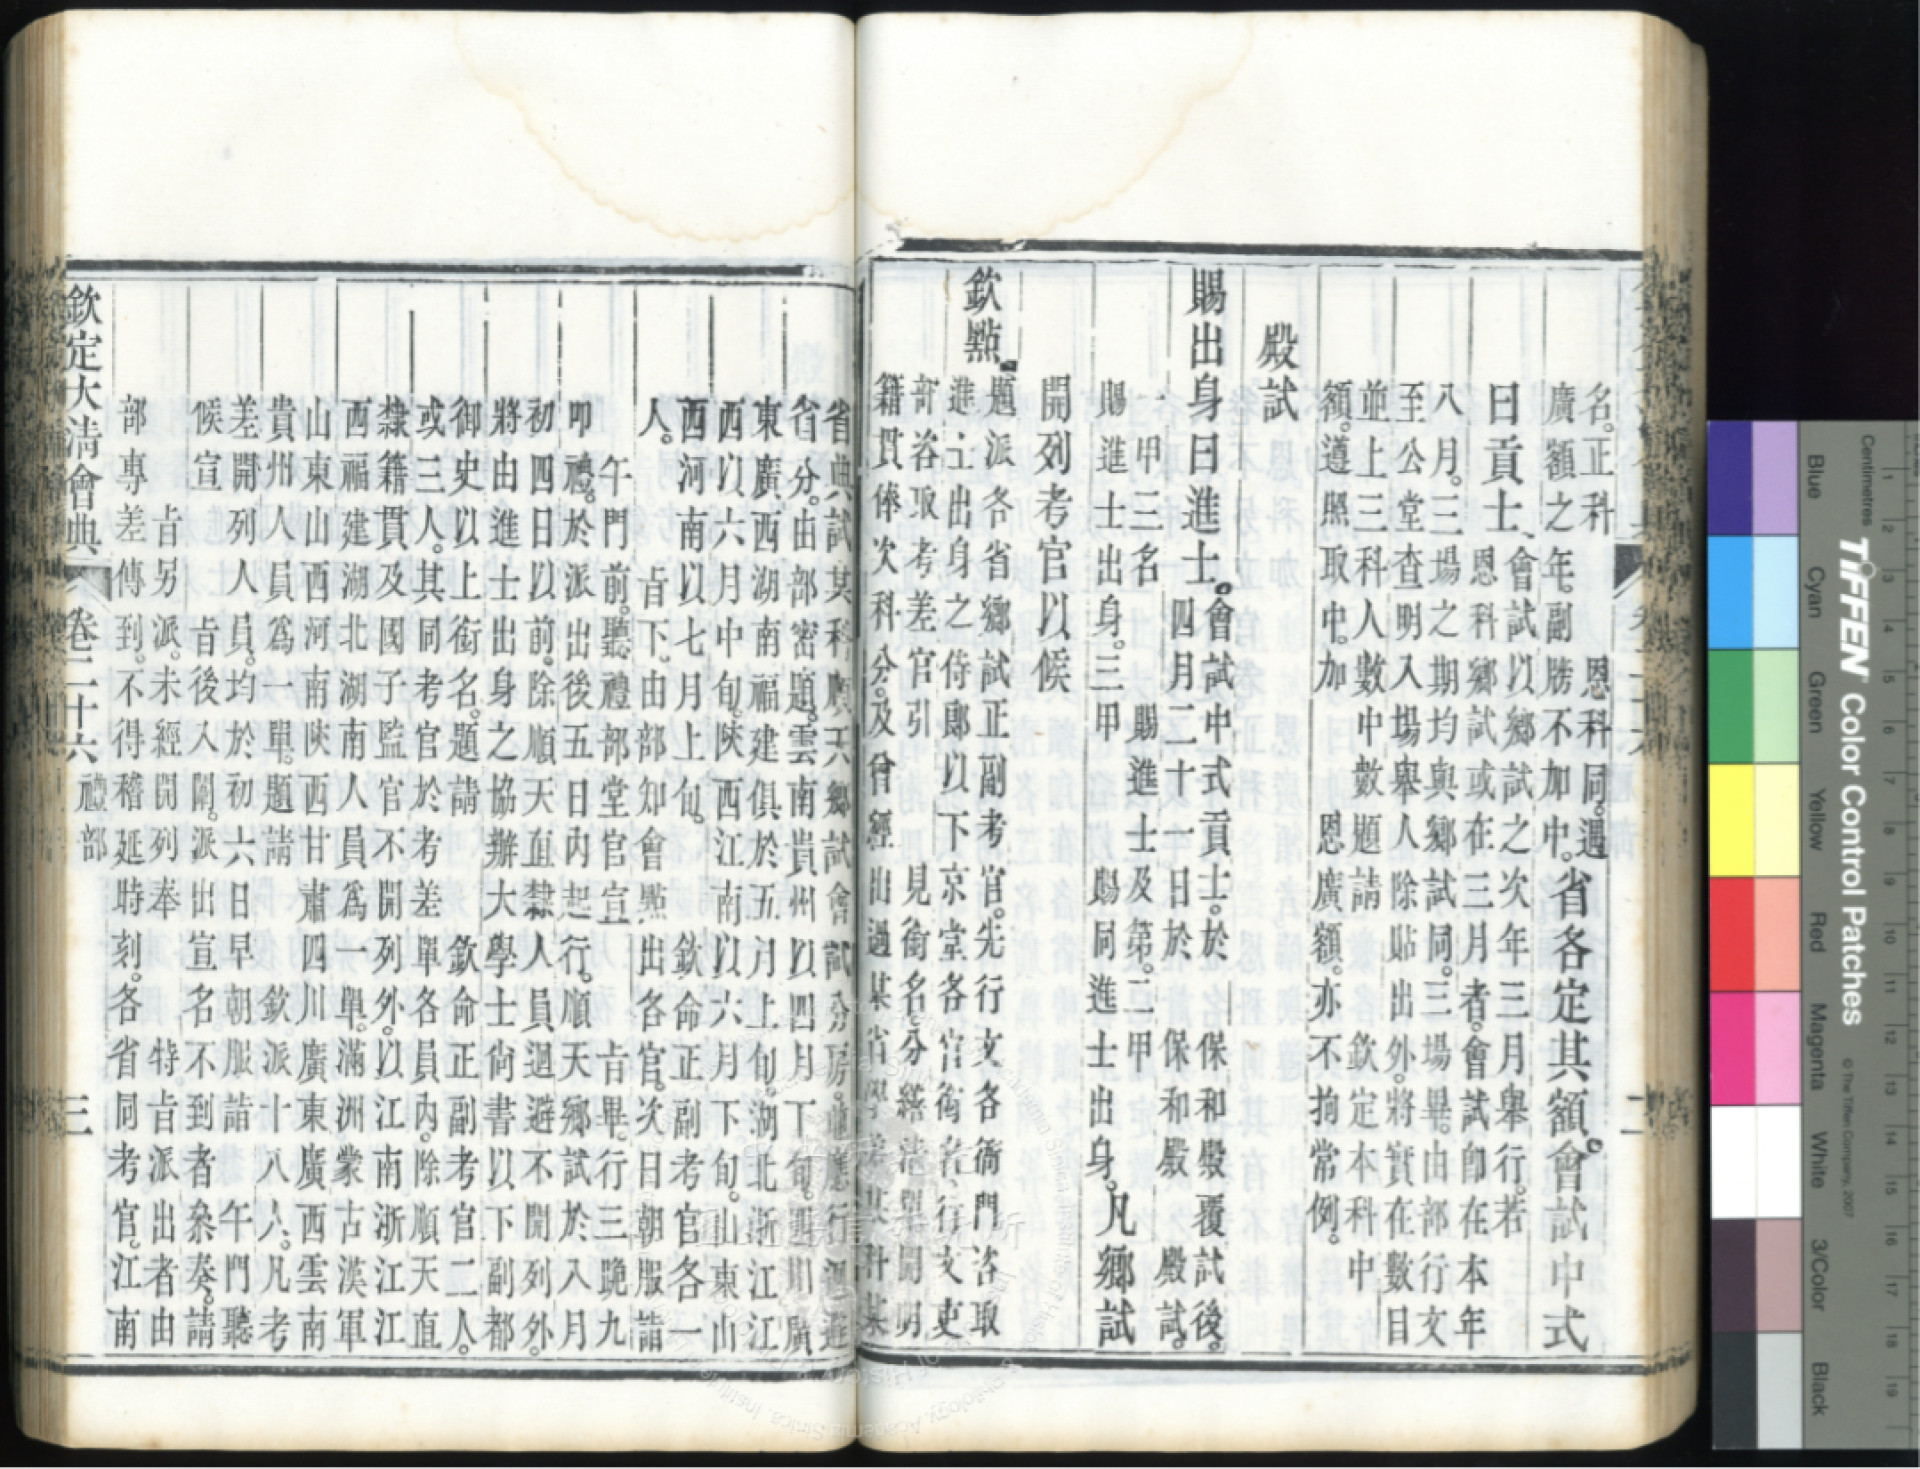 名。正科　恩科同。遇
廣額之年。副牓不加中。省各定其額。會試中式
曰貢士、會試以鄉試之次年三月舉行。若
恩科鄉試或在三月者。會試卽在本年
八月。三場之期均與鄉試同。三場畢。由部行文
至公堂查明入場舉人除貼出外。將實在數目
並上三科人數中數題請　欽定本科中
額。遵照取中。加　恩廣額。亦不拘常例。
殿試
賜出身曰進士。會試中式貢士。於　保和殿覆試後。
四月二十一日於　保和殿　殿試。
一甲三名　賜進士及第。二甲
賜進士出身。三甲　賜同進士出身。凡鄉試
開列考官以候
欽點。題派各省鄉試正副考官。先行文各衙門咨取
進士出身之侍郎以下京堂各官銜名、行文吏
部咨取考差官引　見銜名。分繕清單開明
籍貫俸次科分。及曾經出過某省
省典試某科順天鄉試會試分房。並應行迴避
省分。由部密題。雲南貴州以四月下旬。四川廣
東廣西湖南福建俱於五月上旬。湖北浙江江
西以六月中旬。陝西江南以六月下旬。山東山
西河南以七月上旬。　欽命正副考官各一
人。　旨下。由部知會點出各官。次日朝服詣
午門前。聽禮部堂官宣　旨畢。行三跪九
叩禮。於派出後五日內起行。順天鄉試於八月
初四日以前。除順天直隸人員迴避不開列外。
將由進士出身之協辦大學士尙書以下副都
御史以上銜名。題請　欽命正副考官二人。
或三人。其同考官於考差單各員內。除順天直
隸籍貫及國子監官不開列外。以江南浙江江
西福建湖北湖南人員爲一單。滿洲蒙古漢軍
山東山西河南陝西甘肅四川廣東廣西雲南
貴州人員爲一單。題請　欽派十八人。凡考
差開列人員。均於初六日早朝服詣　午門聽
候宣　旨後入闈。派出宣名不到者叅奏。請
旨另派。未經開列奉　特旨派出者由
部專差傳到。不得稽延時刻。各省同考官。江南
欽定大淸會典　卷三十六　禮部　三
Blue
Cyan
Green
Yellow
Red
Magenta
White
3/Color
Black
TIFFEN Color Control Patches
© The Tiffen Company, 2007
Centimetres
1 2 3 4 5 6 7 8 9 10 11 12 13 14 15 16 17 18 19